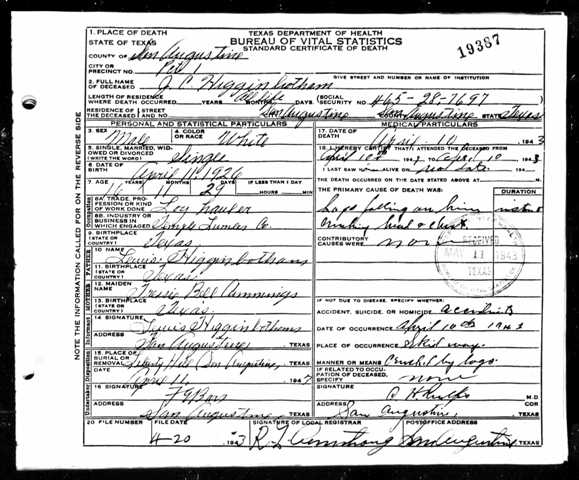 1. PLACE OF DEATH
STATE OF TEXAS
TEXAS DEPARTMENT OF HEALTH
BUREAU OF VITAL STATISTICS
STANDARD CERTIFICATE OF DEATH
19387
COUNTY OF San Augustine
CITY OR
PRECINCT NO.
GIVE STREET AND NUMBER OR NAME OF INSTITUTION
2. FULL NAME OF DECEASED J. C. Higginbotham
LENGTH OF RESIDENCE WHERE DEATH OCCURRED YEARS MONTHS DAYS All life
SOCIAL SECURITY NO. 465-28-7697
RESIDENCE OF THE DECEASED STREET AND NO. San Augustine San Augustine STATE Texas
PERSONAL AND STATISTICAL PARTICULARS
MEDICAL PARTICULARS
3. SEX Male
4. COLOR OR RACE White
17. DATE OF DEATH April 10 1943
5. SINGLE, MARRIED, WIDOWED OR DIVORCED (WRITE THE WORD) Single
18. I HEREBY CERTIFY THAT I ATTENDED THE DECEASED FROM
April 10th 1943 TO April 10 1943
6. DATE OF BIRTH April 11 1926
I LAST SAW ALIVE ON
THE DEATH OCCURRED ON THE DATE STATED ABOVE AT M.
7. AGE 16 11 29 IF LESS THAN 1 DAY
HOURS MIN
THE PRIMARY CAUSE OF DEATH WAS: DURATION
8A. TRADE, PROFESSION OR KIND OF WORK DONE Log hauler
logs falling on him
8B. INDUSTRY OR BUSINESS IN WHICH ENGAGED Temple Lumber Co.
crushing head & chest
9. BIRTHPLACE (STATE OR COUNTRY) Texas
CONTRIBUTORY CAUSES WERE none
RECEIVED
MAY 11 1943
TEXAS
FATHER
10. NAME Lewis Higginbotham
11. BIRTHPLACE (STATE OR COUNTRY) Texas
MOTHER
12. MAIDEN NAME Bell Cummings
13. BIRTHPLACE (STATE OR COUNTRY) Texas
IF NOT DUE TO DISEASE, SPECIFY WHETHER:
ACCIDENT, SUICIDE, OR HOMICIDE accident
DATE OF OCCURRENCE April 10th 1943
14. SIGNATURE Lewis Higginbotham
ADDRESS San Augustine, TEXAS
PLACE OF OCCURRENCE skid way
15. PLACE OF BURIAL OR REMOVAL Liberty Hill San Augustine, TEXAS
MANNER OR MEANS Crushed by logs
DATE April 11 194
IF RELATED TO OCCUPATION OF DECEASED, SPECIFY none
16. SIGNATURE
SIGNATURE M.D.
ADDRESS San Augustine, TEXAS
ADDRESS San Augustine, TEXAS
COR
20. FILE NUMBER
FILE DATE 4-20 1943
SIGNATURE OF LOCAL REGISTRAR R. L. Armstrong
POSTOFFICE ADDRESS San Augustine TEXAS
NOTE THE INFORMATION CALLED FOR ON THE REVERSE SIDE